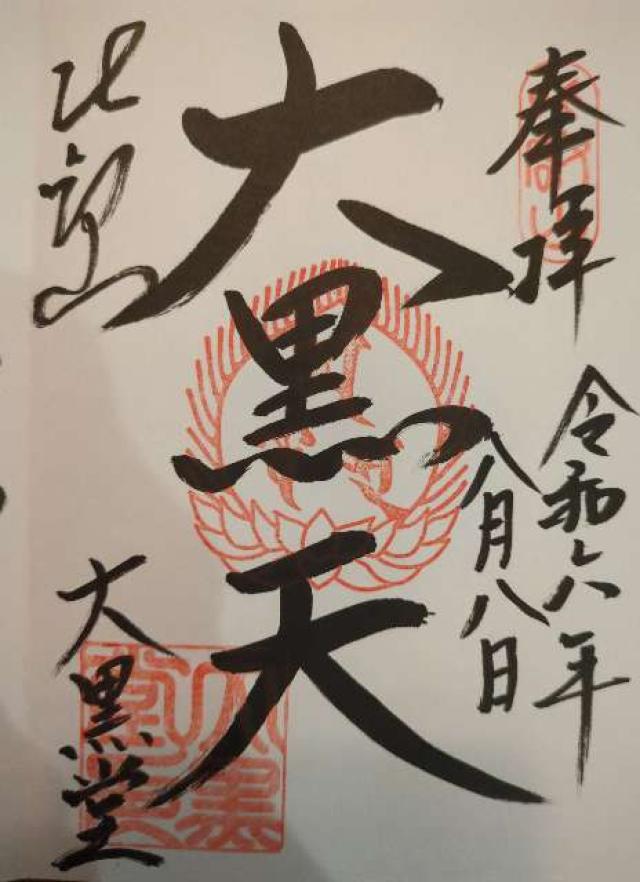 奉拝
令和六年
八月八日
大黒天
比叡山
大黒堂